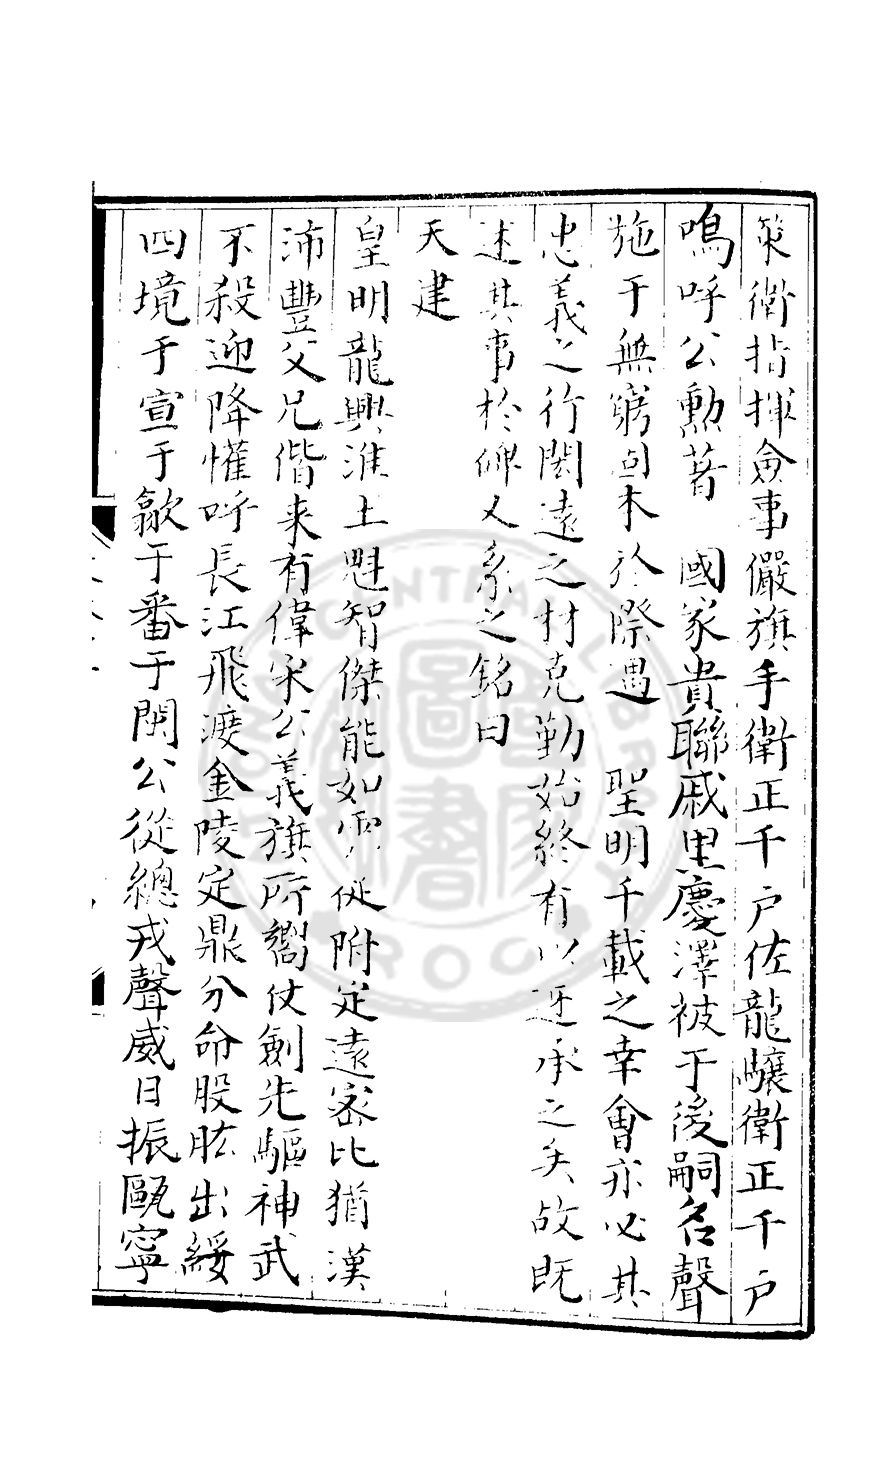 策衛指揮僉事儼旗手衛正千户佐龍驤衛正千户
嗚呼公勲著　國家貴聯戚里慶澤被于後嗣名聲
施于無窮固本於際遇　聖明千載之幸會亦必其
忠義之行閎遠之材克勤始終有以迓承之矣故既
述其事於碑又系之銘曰
天建
皇明龍興淮土魁智傑能如雲從附定遠密比猶漢
沛豐父兄偕来有偉宋公義旗所嚮仗劍先驅神武
不殺迎降懽呼長江飛渡金陵定鼎分命股肱出綏
四境于宣于歙于番于閩公從總戎聲威日振甌寧